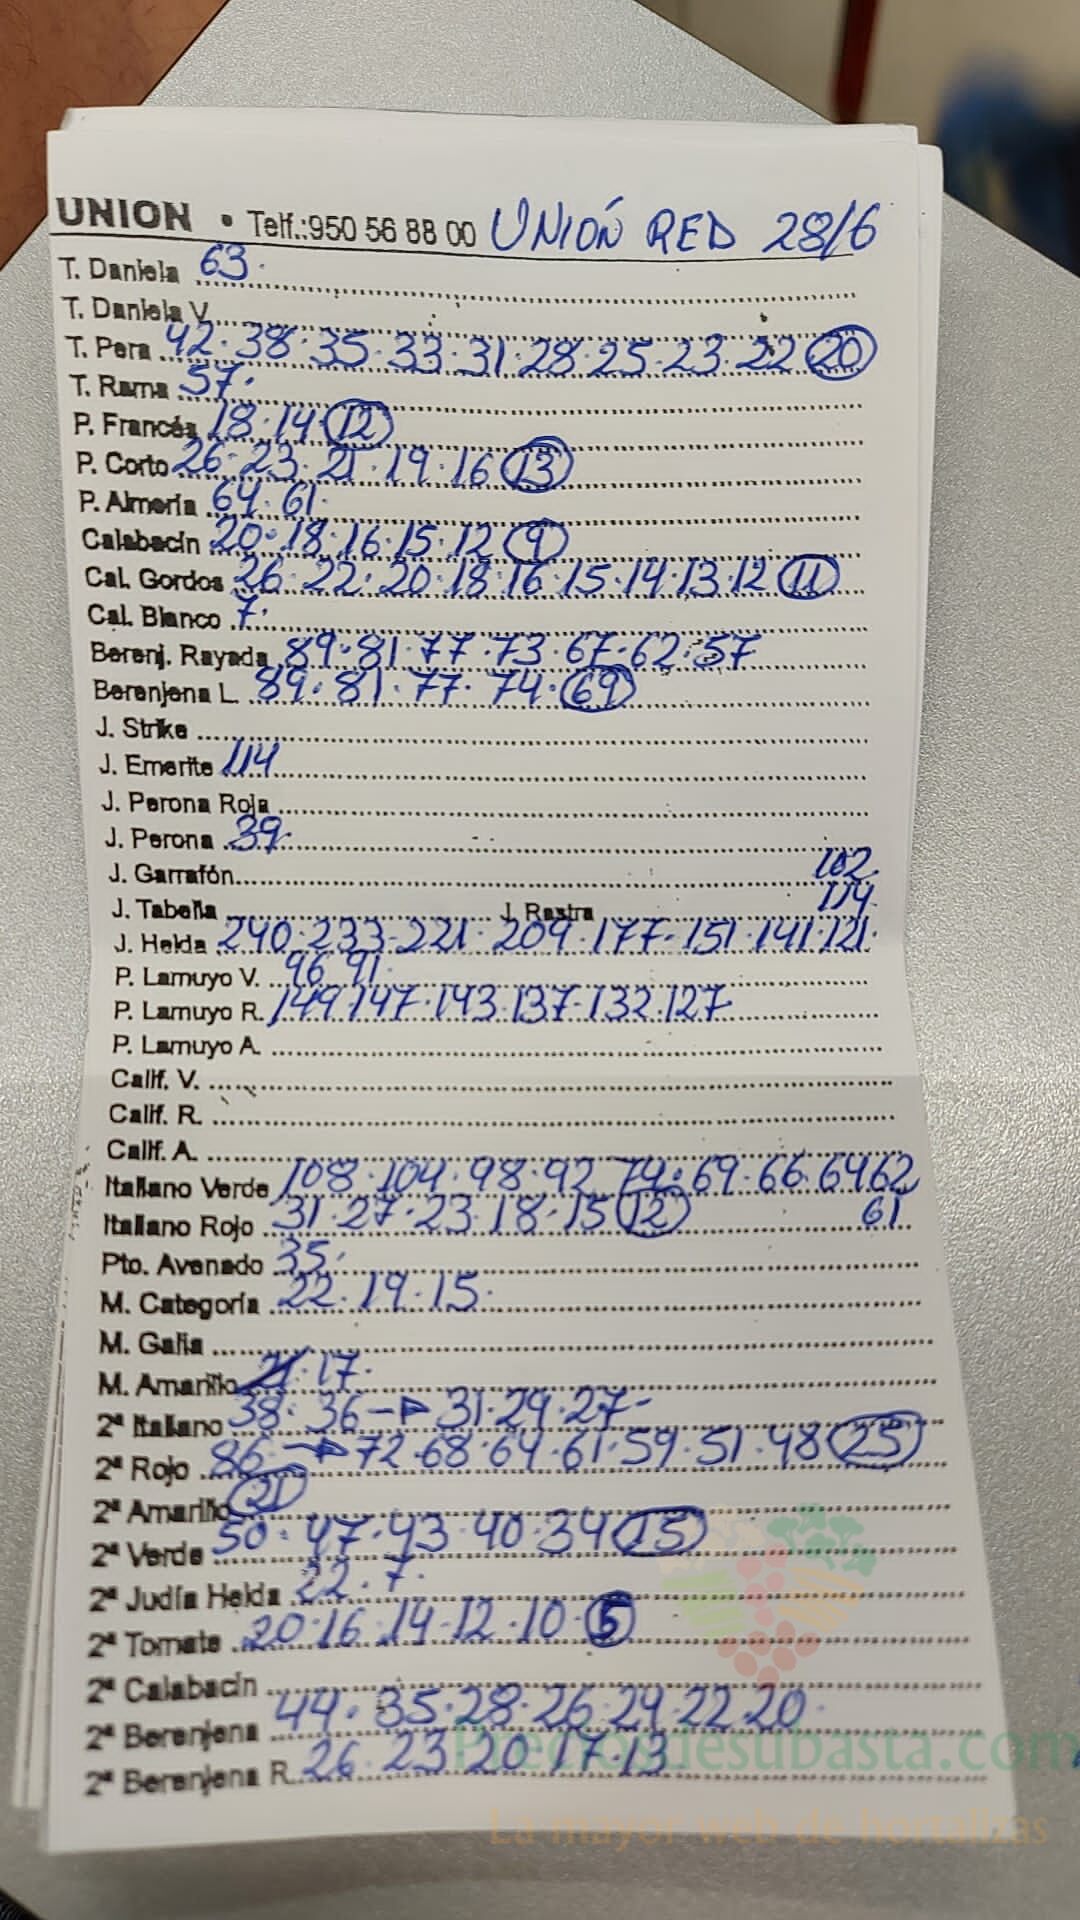 UNION • Telf.:950 56 88 00 UNIÓN RED 28/6
T. Daniela 63.
T. Daniela V.
T. Pera 42.38.35.33.31.28.25.23.22 20
T. Rama 57.
P. Francés 18.14 12
P. Corto 26.23.21.19.16 13
P. Almería 64.61.
Calabacín 20.18.16.15.12 9
Cal. Gordos 26.22.20.18.16.15.14.13.12 11
Cal. Blanco 7.
Berenj. Rayada 89.81.77.73.67.62.57
Berenjena L. 89.81.77.74.69
J. Strike
J. Emerite 114
J. Perona Roja
J. Perona 39.
J. Garrafón 102.
J. Tabella J. Rastra 114.
J. Helda 240.233-221.209.177-151.141.121.
P. Lamuyo V. 96 91.
P. Lamuyo R. 149 147.143.137-132.127
P. Lamuyo A.
Calif. V.
Calif. R.
Calif. A.
Italiano Verde 108.104.98.92 74.69.66.64 62
Italiano Rojo 31.27.23.18.15 12 61
Pto. Avenado 35.
M. Categoría 22.19.15.
M. Galia
M. Amarillo 17.
2ª Italiano 38.36→31.29.27-
2ª Rojo 86→72.68.64.61.59.51.48 25
2ª Amarillo 21
2ª Verde 50.47.43.40.34 15
2ª Judía Helda 22.7.
2ª Tomate 20.16.14.12.10.5
2ª Calabacín
2ª Berenjena 44.35.28.26.24.22.20.
2ª Berenjena R. 26.23.20.17.13
Preciosdesubasta.com
La mayor web de hortalizas